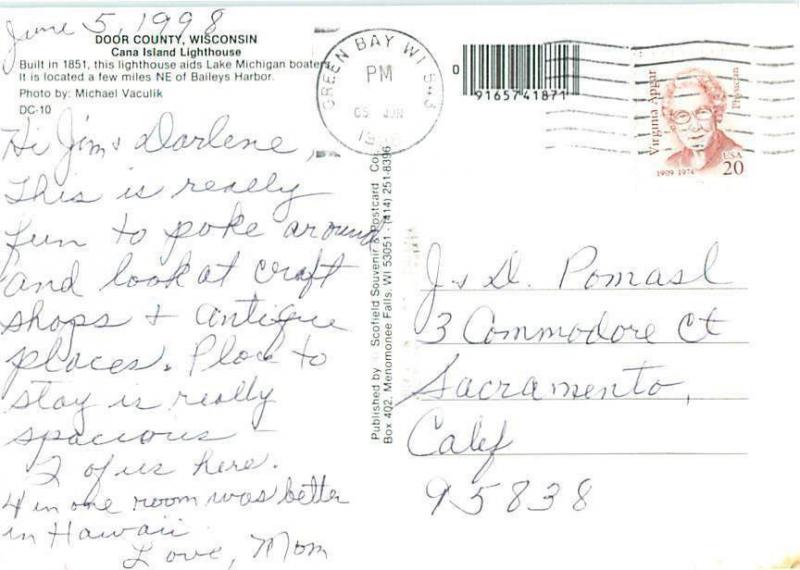 June 5, 1998
DOOR COUNTY, WISCONSIN
Cana Island Lighthouse
Built in 1851, this lighthouse aids Lake Michigan boaters
It is located a few miles NE of Baileys Harbor.
Photo by: Michael Vaculik
DC-10
Hi Jim & Darlene,
This is really
fun to poke around
and look at craft
shops & antique
places. Place to
stay is really
spacious –
2 of us here.
4 in one room was better
in Hawaii
Love, Mom
Published by Scofield Souvenir & Postcard Co.
Box 402, Menomonee Falls, WI 53051 - (414) 251-8396
GREEN BAY WI 543
PM
05 JUN
0
9165741871
Virginia Apgar
Physician
1909 1974
USA
20
J & D. Pomasl
3 Commodore Ct
Sacramento,
Calif
95838